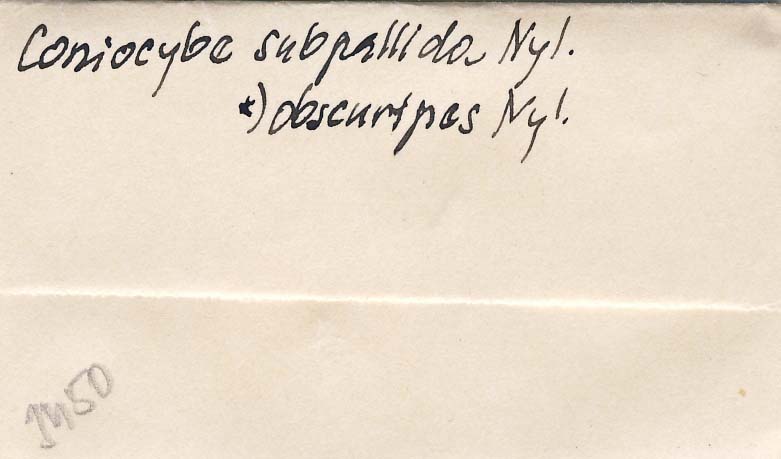 Coniocybe subpallida Nyl.
*) obscuripes Nyl.